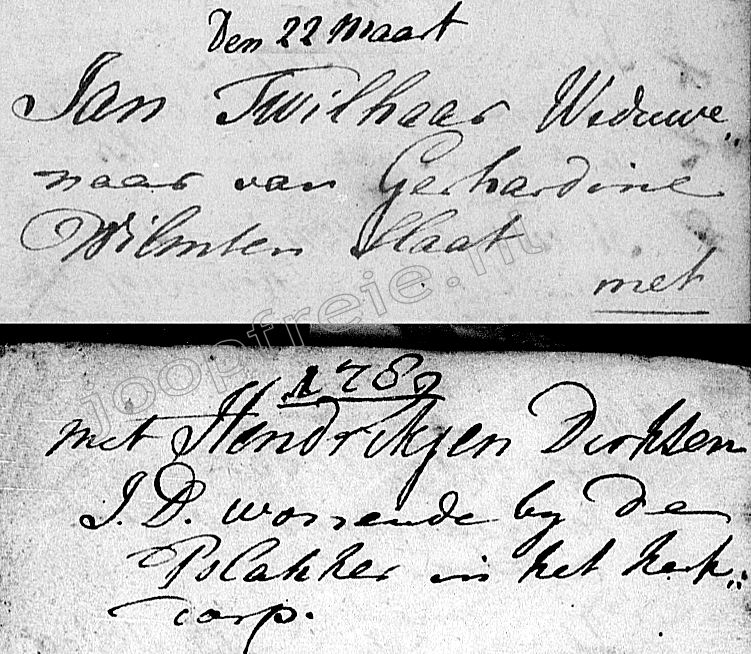 Den 22 Maart
Jan Twilhaar Weduwe„
naar van Gerhardine
Wilmten Slaat
met
1789
met Hendrikjen Derksen
J. D. wonende by De
Polakker in het kerk„
dorp.
joopfreie.nl